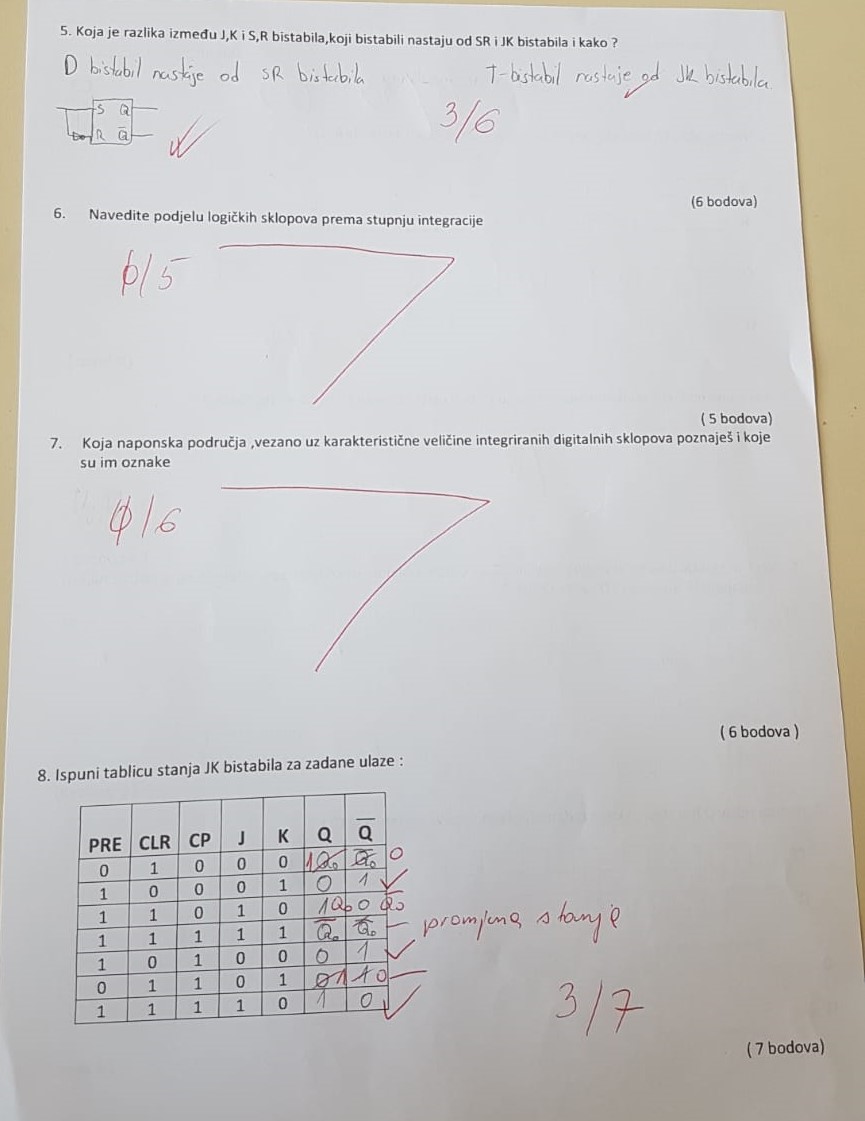 5. Koja je razlika između J,K i S,R bistabila,koji bistabili nastaju od SR i JK bistabila i kako ?
D bistabil nastaje od SR bistabila T-bistabil nastaje od JK bistabila
S Q
R Q̅
3/6
(6 bodova)
6. Navedite podjelu logičkih sklopova prema stupnju integracije
0/5
( 5 bodova)
7. Koja naponska područja ,vezano uz karakteristične veličine integriranih digitalnih sklopova poznaješ i koje
su im oznake
0/6
( 6 bodova )
8. Ispuni tablicu stanja JK bistabila za zadane ulaze :
PRE CLR CP J K Q Q̅
0 1 0 0 0 1 Q₀ Q̅₀ 0
1 0 0 0 1 0 1
1 1 0 1 0 1 Q₀ 0 Q̅₀
1 1 1 1 1 Q̅₀ promjena stanja
1 0 1 0 0 0 1
0 1 1 0 1 0 1 1 0
1 1 1 1 0 1 0
3/7
( 7 bodova)